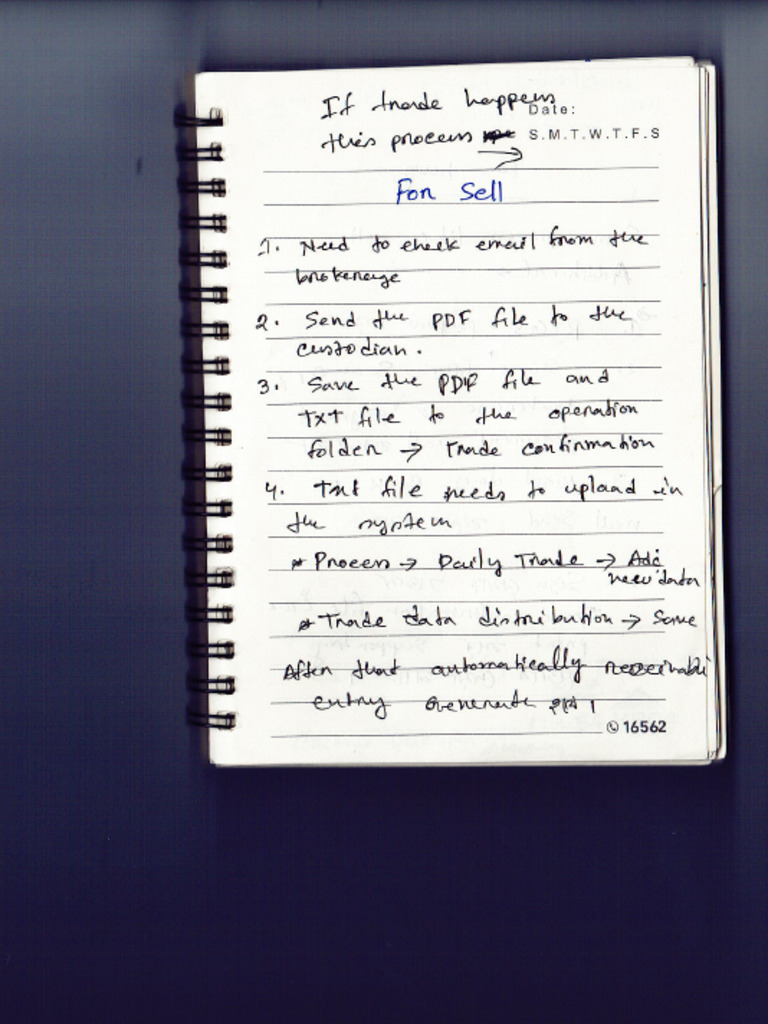 If trade happens
Date:
this process →
S.M.T.W.T.F.S
For Sell
1. Need to check email from the
brokerage
2. Send the PDF file to the
custodian.
3. Save the PDF file and
TXT file to the operation
folder → Trade confirmation
4. Txt file needs to upload in
the system
* Process → Daily Trade → Add
new data
* Trade data distribution → Save
After that automatically receivable
entry Generate হবে।
16562